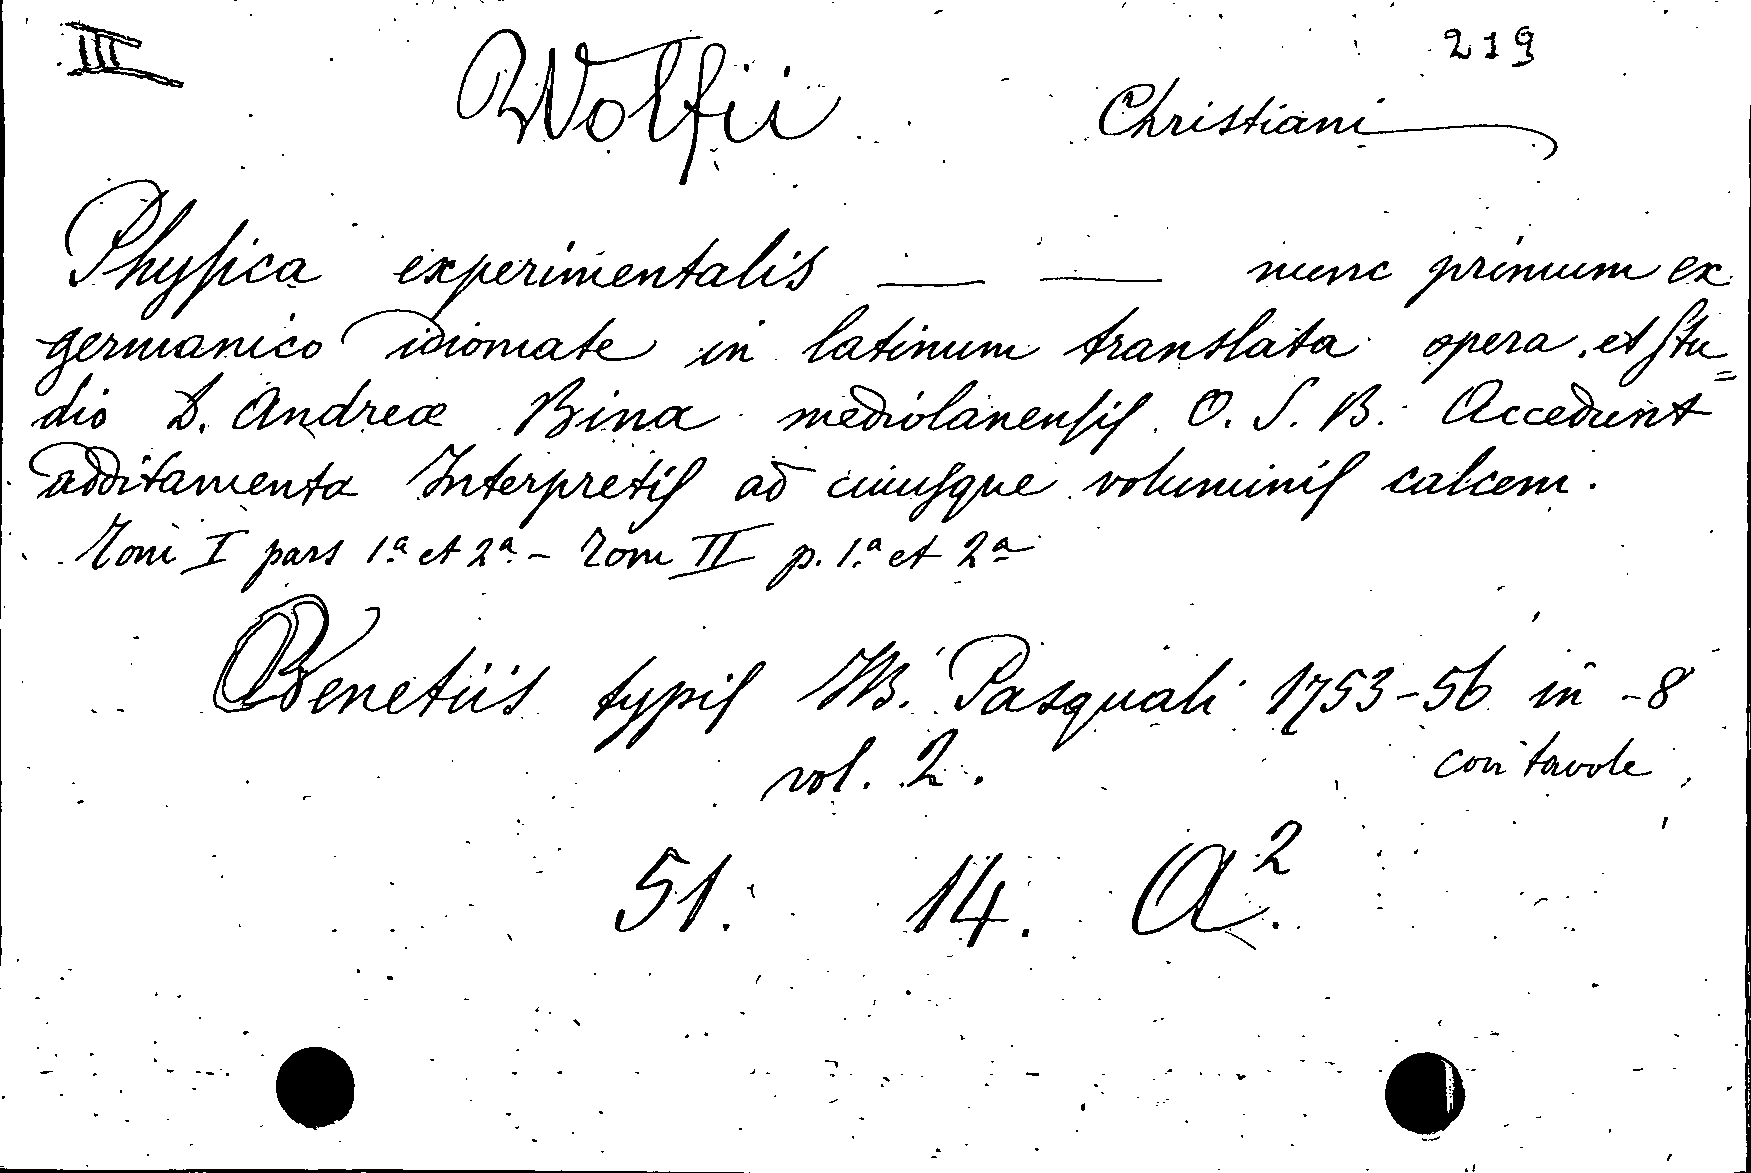 III 219
Wolfii Christiani
Physica experimentalis — — nunc primum ex
germanico idiomate in latinum translata opera et stu=
dio D. Andreæ Bina mediolanensis O. S. B. Accedunt
additamenta Interpretis ad cuiusque voluminis calcem.
Tom I pars 1.ª et 2.ª - Tom II p. 1.ª et 2ª
Venetiis typis JB. Pasquali 1753-56 in -8
vol. 2. con tavole
51. 14. A².